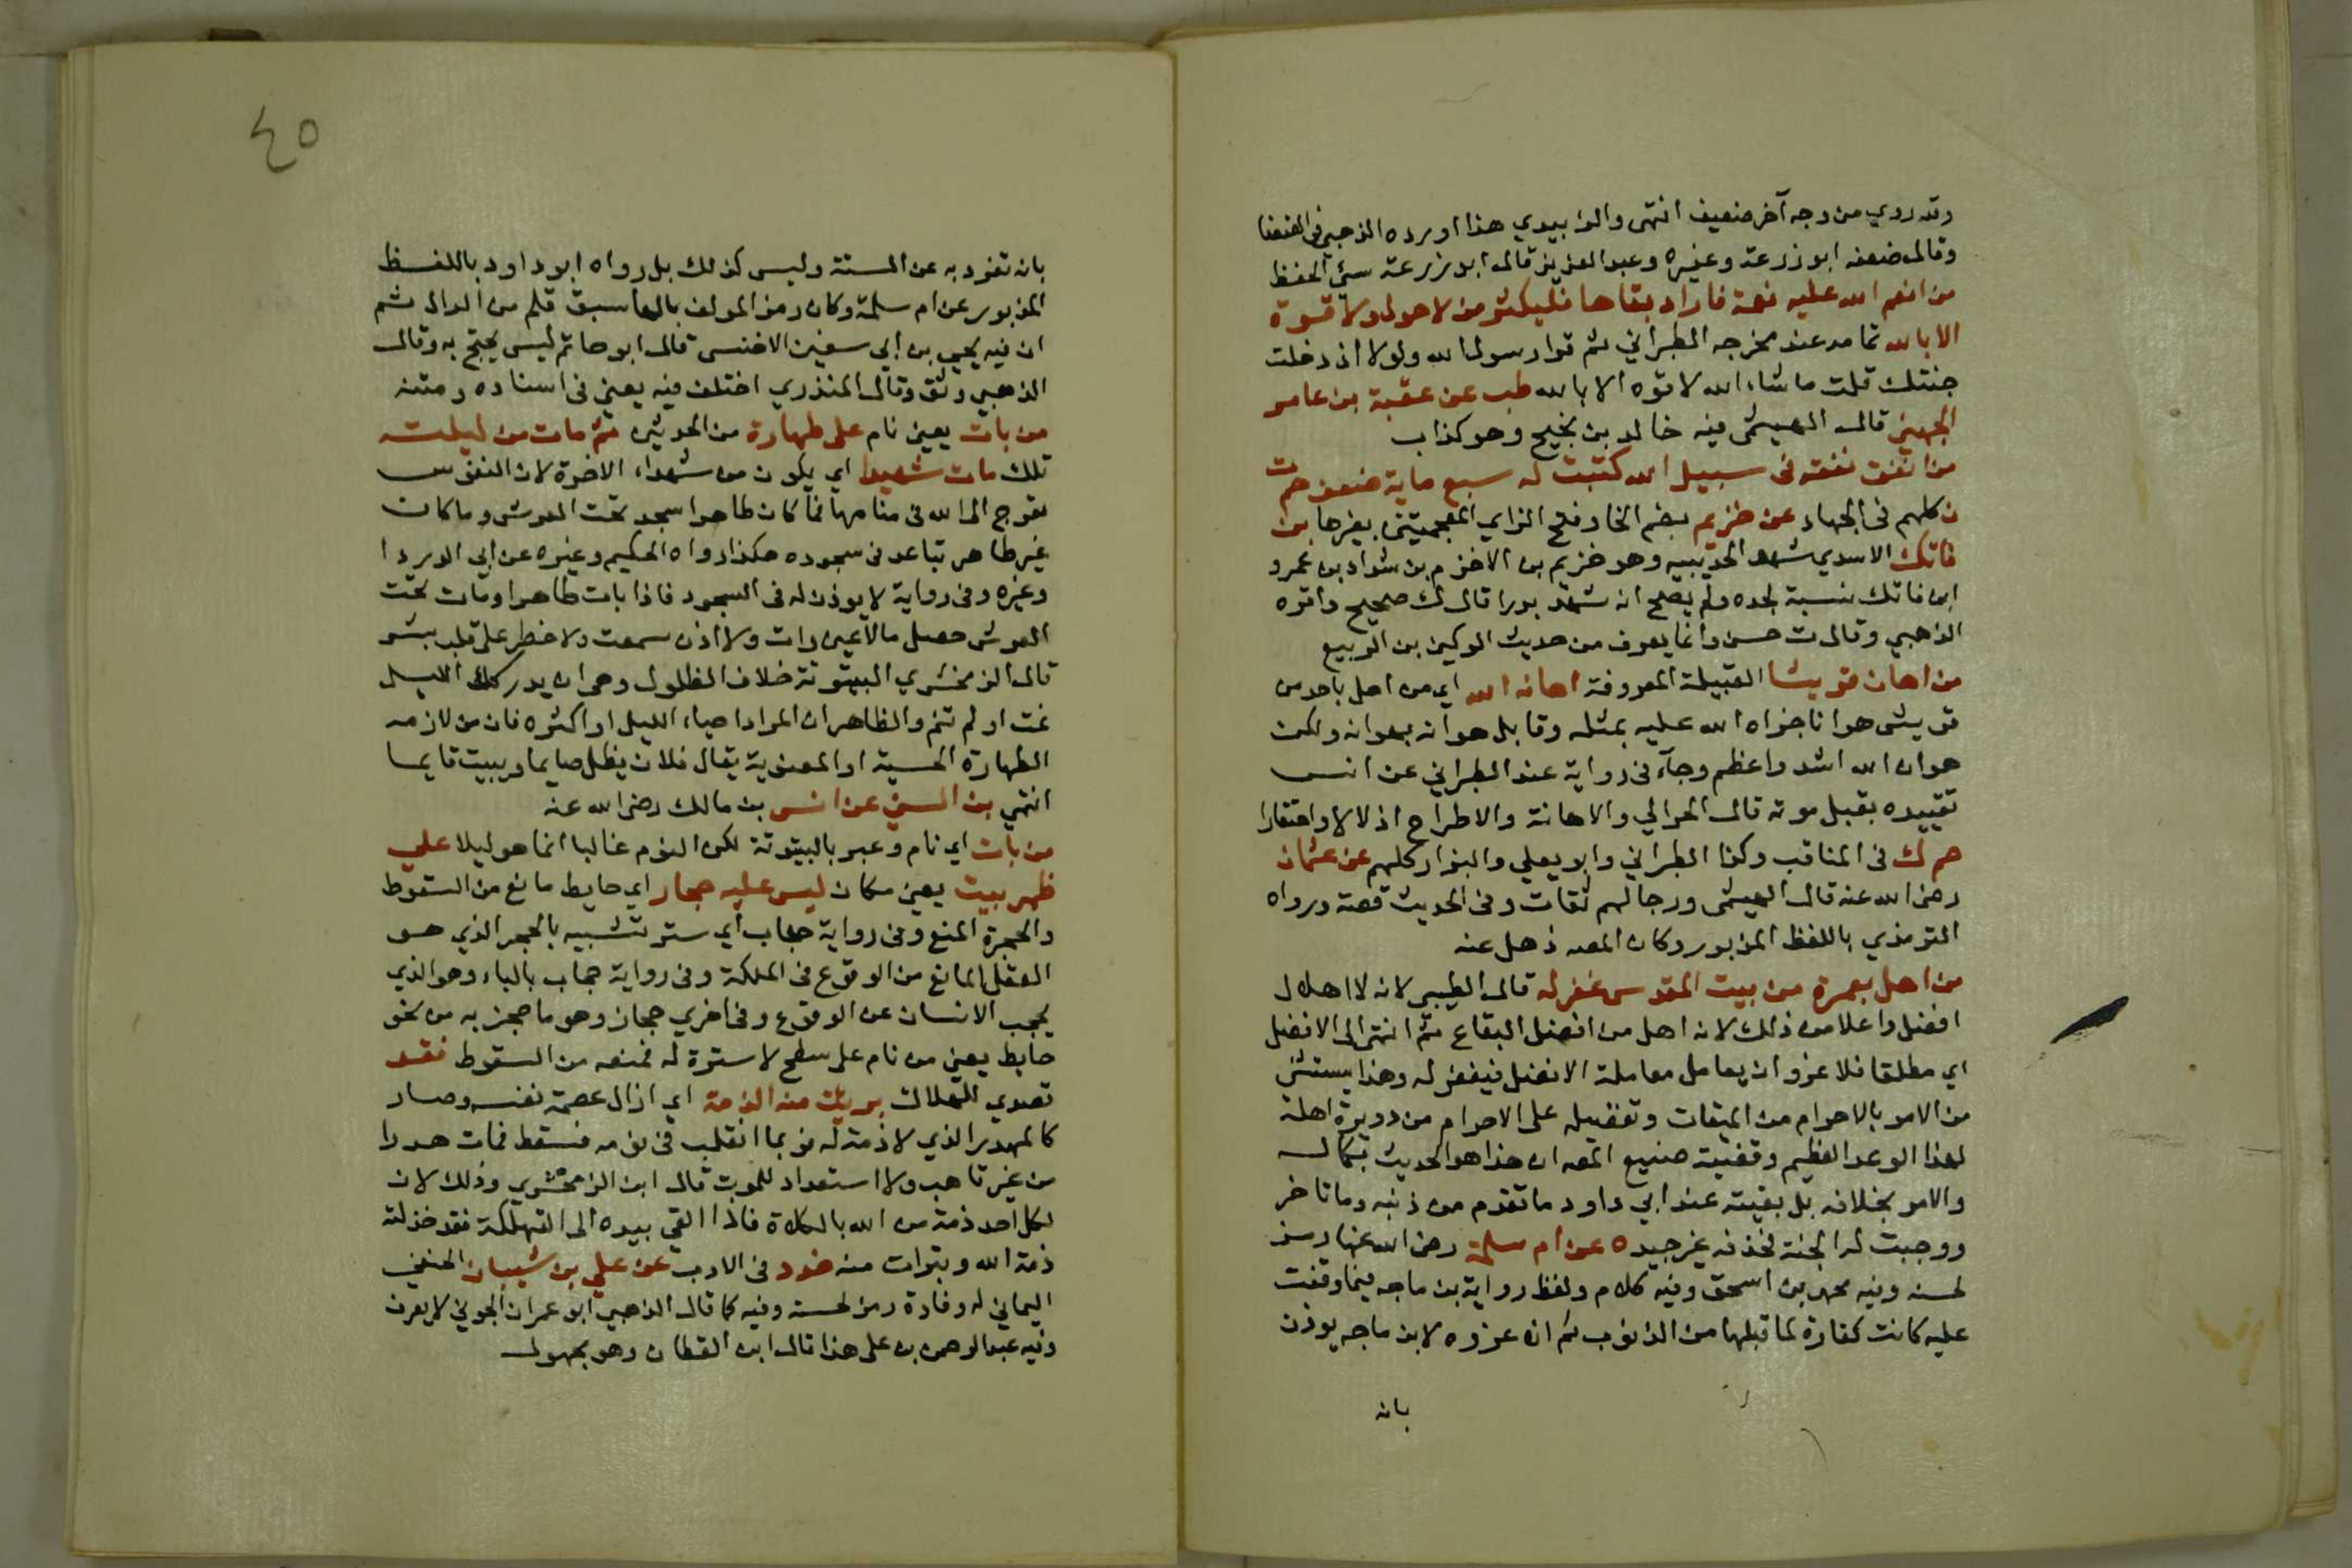 وقد روي من وجه آخر ضعيف انتهى والوابيدي هذا اورده الذهبي في الضعفا
وقال ضعفه ابو زرعة وغيره وعبد العزيز قال ابو زرعة سيئ الحفظ
من انعم الله عليه نعمة فاراد بقاها فليكثر من لا حول ولا قوة
الا بالله تمامه عند مخرجه الطبراني ثم قرا رسول الله ولولا اذ دخلت
جنتك قلت ما شاء الله لا قوه الا بالله طب عن عقبة بن عامر
الجهني قال الهيثمى فيه خالد بن نجيح وهو كذاب
من انفق نفقه في سبيل الله كتبت له سبع ماية ضعف حم ت
ن كلهم في الجهاد عن خزيم بضم الخا وفتح الزاي المعجمتين بغيرها بن
فاتك الاسدي شهد الحديبيه وهو خزيم بن الاخزم بن شداد بن عمرو
ابن فاتك نسبة لجده ولم يصح انه شهد بدرا قال ك صحيح واقره
الذهبي وقال ت حسن وانما يعرف من حديث الركين بن الربيع
من اهان قريشا القبيلة المعروفة اهانه الله اي من احل باحد من
قريش هوانا جزاه الله عليه بمثله وقابل هوانه بهوانه ولكن
هوان الله اشد واعظم وجآء في رواية عند الطبراني عن انس
تقييده بقبل موته قال الحرالي والاهانة والاطراح اذلالا واحتقارا
حم ك في المناقب وكذا الطبراني وابو يعلي والبزار كلهم عن عثمان
رضي الله عنه قال الهيثمى ورجالهم ثقات وفي الحديث قصة ورواه
الترمذي باللفظ المزبور وكان المص ذهل عنه
من اهل بعمرة من بيت المقدس غفر له قال الطيبي لانه لا اهلال
افضل واعلا من ذلك لانه اهل من افضل البقاع ثم انتهى الى الافضل
اي مطلقا فلا غرو ان يعامل معاملة الافضل فيغفر له وهذا يستثنى
من الامر بالاحرام من الميقات وتفضيله على الاحرام من دويرة اهله
لهذا الوعد العظيم وقضية صنيع المص ان هذا هو الحديث بكماله
والامر بخلافه بل بقيته عند ابي داود ما تقدم من ذنبه وما تاخر
ووجبت له الجنة فحذفه غير جيد ه عن ام سلمة رضي الله عنها رمز
لحسنه وفيه محمد بن اسحق وفيه كلام ولفظ رواية بن ماجه فيما وقفت
عليه كانت كفارة لما قبلها من الذنوب ثم ان عزوه لابن ماجه يوذن
بانه
٤٥
بانه تفرد به عن الستة وليس كذلك بل رواه ابو داود باللفظ
المزبور عن ام سلمة وكان رمز المولف بالها سبق قلم من الدال ثم
ان فيه يحيي بن ابي سفين الاخنسى قال ابو حاتم ليس يحتج به وقال
الذهبي وثق وقال المنذري اختلف فيه يعني في اسناده ومتنه
من بات يعني نام على طهارة من الحدثين ثم مات من ليلته
تلك مات شهيدا اي يكون من شهداء الاخرة لان النفوس
تعرج الى الله في منامها فما كان طاهرا سجد تحت العرش وما كان
غير طاهر تباعد في سجوده هكذا رواه الحكيم وغيره عن ابي الدردا
وغيره وفي رواية لا يوذن له في السجود فاذا بات طاهرا ومات تحت
العرش حصل مالا عين رات ولا اذن سمعت ولا خطر على قلب بشر
قال الزمخشري البيتوتة خلاف الظلول وهى ان يدركك الليل
نمت او لم تنم والظاهر ان المراد احياء الليل او اكثره فان من لازمه
الطهارة الحسية او المعنوية يقال فلان يظل صايما ويبيت قايما
انتهي بن السني عن انس بن مالك رضى الله عنه
من بات اي نام وعبر بالبيتوتة لكن النوم غالبا انما هو ليلا علي
ظهر بيت يعني مكان ليس عليه حجار اي حايط مانع من السقوط
والحجرة المنع وفي رواية حجاب اي ستر تشبيه بالحجر الذي هو
العقل المانع من الوقوع في الهلكة وفي رواية حجاب بالباء وهو الذي
يحجب الانسان عن الوقوع وفي اخري حجاز وهو ما حجز به من نحو
حايط يعني من نام على سطح لا سترة له فمنعه من السقوط فقد
تصدي للهلاك بريت منه الذمة اي ازال عصمة نفسه وصار
كالمهدر الذي لا ذمة له فربما انقلب في نومه فسقط فمات هدرا
من غير تاهب ولا استعداد للموت قال ابن الزمخشري وذلك لان
لكل احد ذمة من الله بالكلاة فاذا القي بيده الى التهلكة فقد خذلته
ذمة الله وتبرات منه خد د في الادب عن علي بن شيبان الحنفي
اليماني له وفادة رمز لحسنه وفيه كما قال الذهبي ابو عمران الجوني لا يعرف
وفيه عبد الرحمن بن على هذا قال ابن القطان وهو مجهول